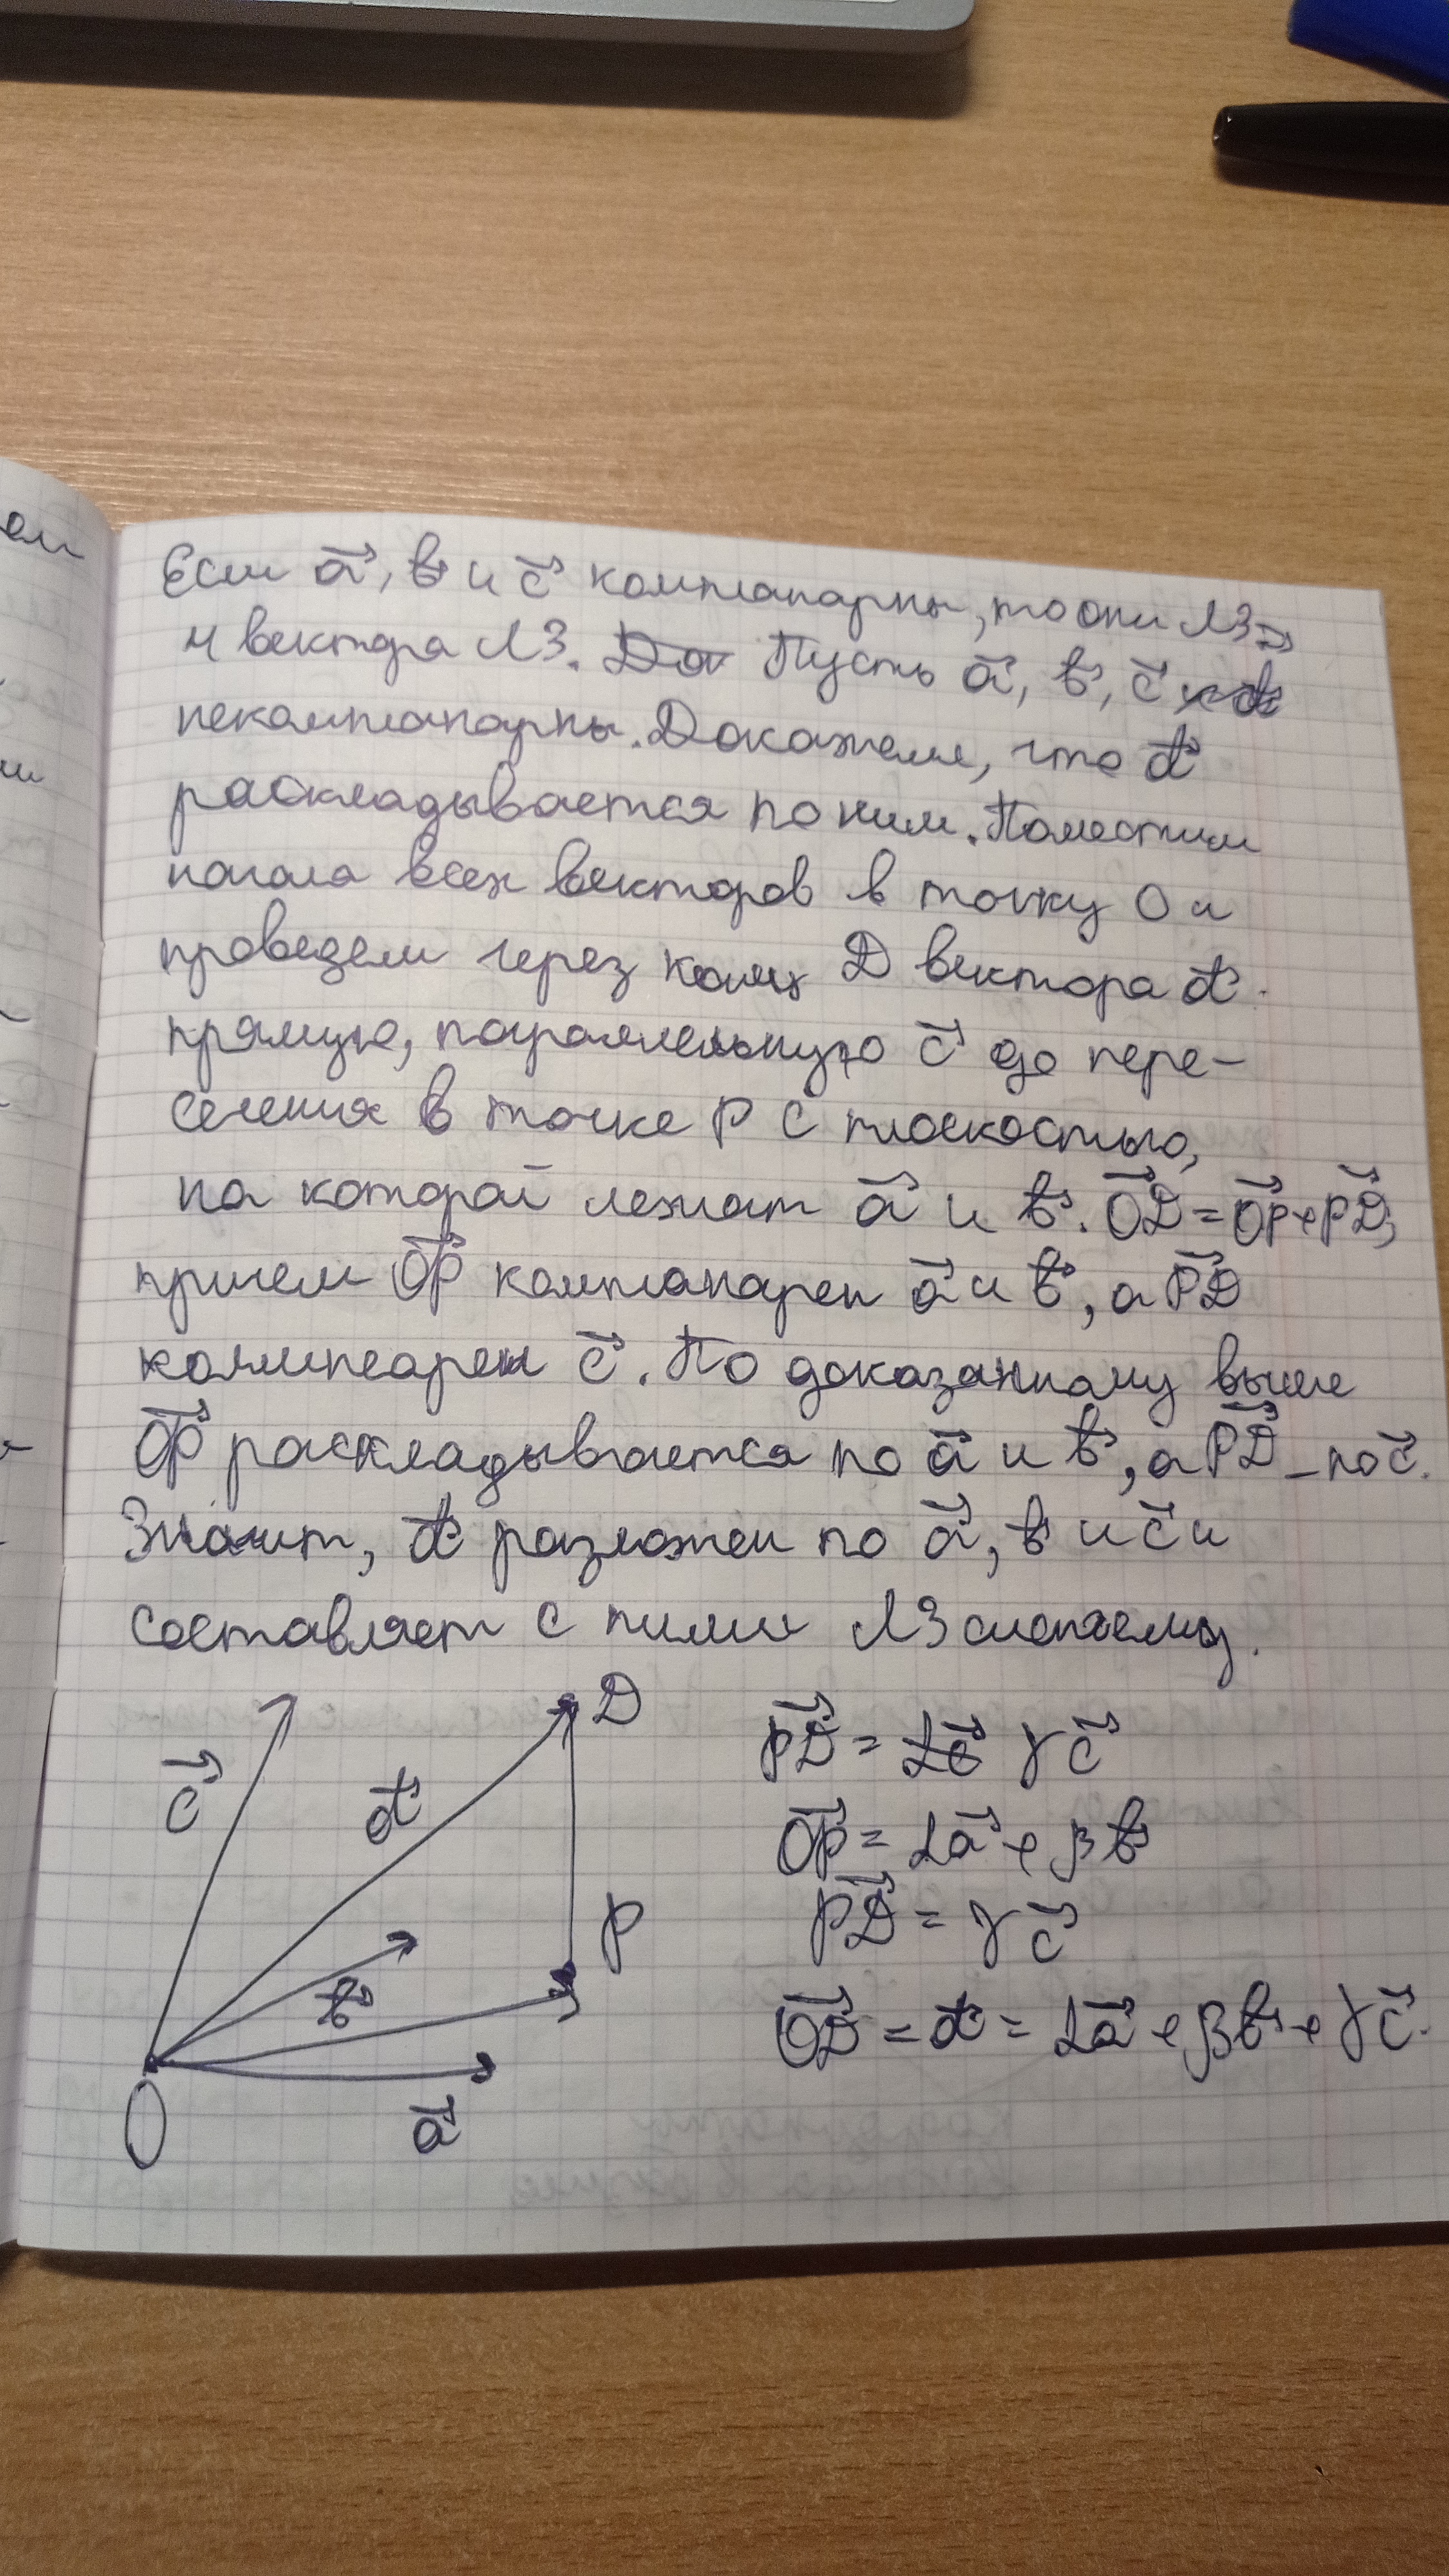 Если a⃗, b⃗ и c⃗ компланарны, то они ЛЗ ⇒
4 вектора ЛЗ. Пусть a⃗, b⃗, c⃗
некомпланарны. Докажем, что d⃗
раскладывается по ним. Поместим
начала всех векторов в точку O и
проведем через конец D вектора d⃗
прямую, параллельную c⃗ до пере-
сечения в точке P с плоскостью,
на которой лежат a⃗ и b⃗. OD⃗ = OP⃗ + PD⃗,
причем OP⃗ компланарен a⃗ и b⃗, а PD⃗
коллинеарен c⃗. По доказанному выше
OP⃗ раскладывается по a⃗ и b⃗, а PD⃗ – по c⃗.
Значит, d⃗ разложен по a⃗, b⃗ и c⃗ и
составляет с ними ЛЗ систему.
D
c⃗
d⃗
P
b⃗
a⃗
O
PD⃗ = γc⃗
OP⃗ = αa⃗ + βb⃗
PD⃗ = γc⃗
OD⃗ = d⃗ = αa⃗ + βb⃗ + γc⃗.